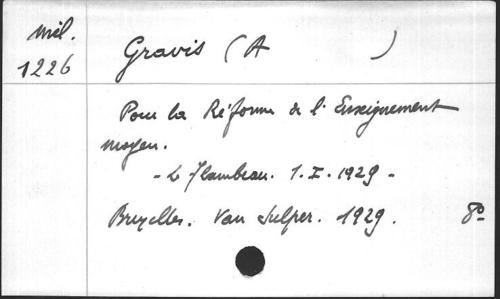 Mél.
1226
Gravis (A )
Pour la Réforme de l'Enseignement
moyen.
- Le Flambeau. 1.I.1929 -
Bruxelles. Van Sulper. 1929. 8º